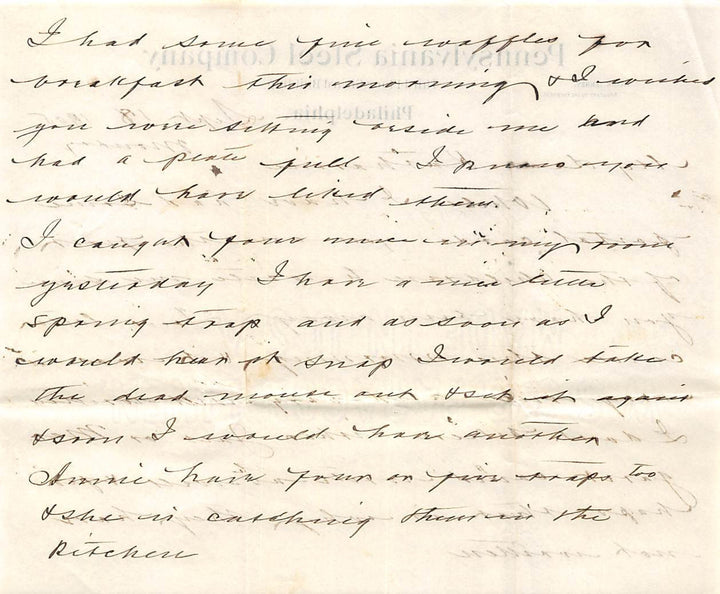 I had some fine waffles for
breakfast this morning & I wished
you were sitting beside me and
had a plate full I know you
would have liked them.
I caught four mice in my room
yesterday I have a nice little
spring trap and as soon as I
would hear it snap I would take
the dead mouse out & set it again
& soon I would have another
Annie have four or five traps too
& she is catching them in the
Kitchen
Pennsylvania Steel Company
Philadelphia